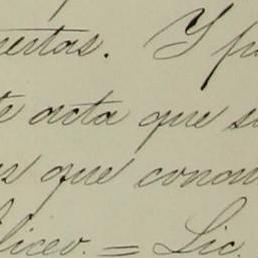 uertas. Y fu
te acta que s
es que conon
licev. = Lic.